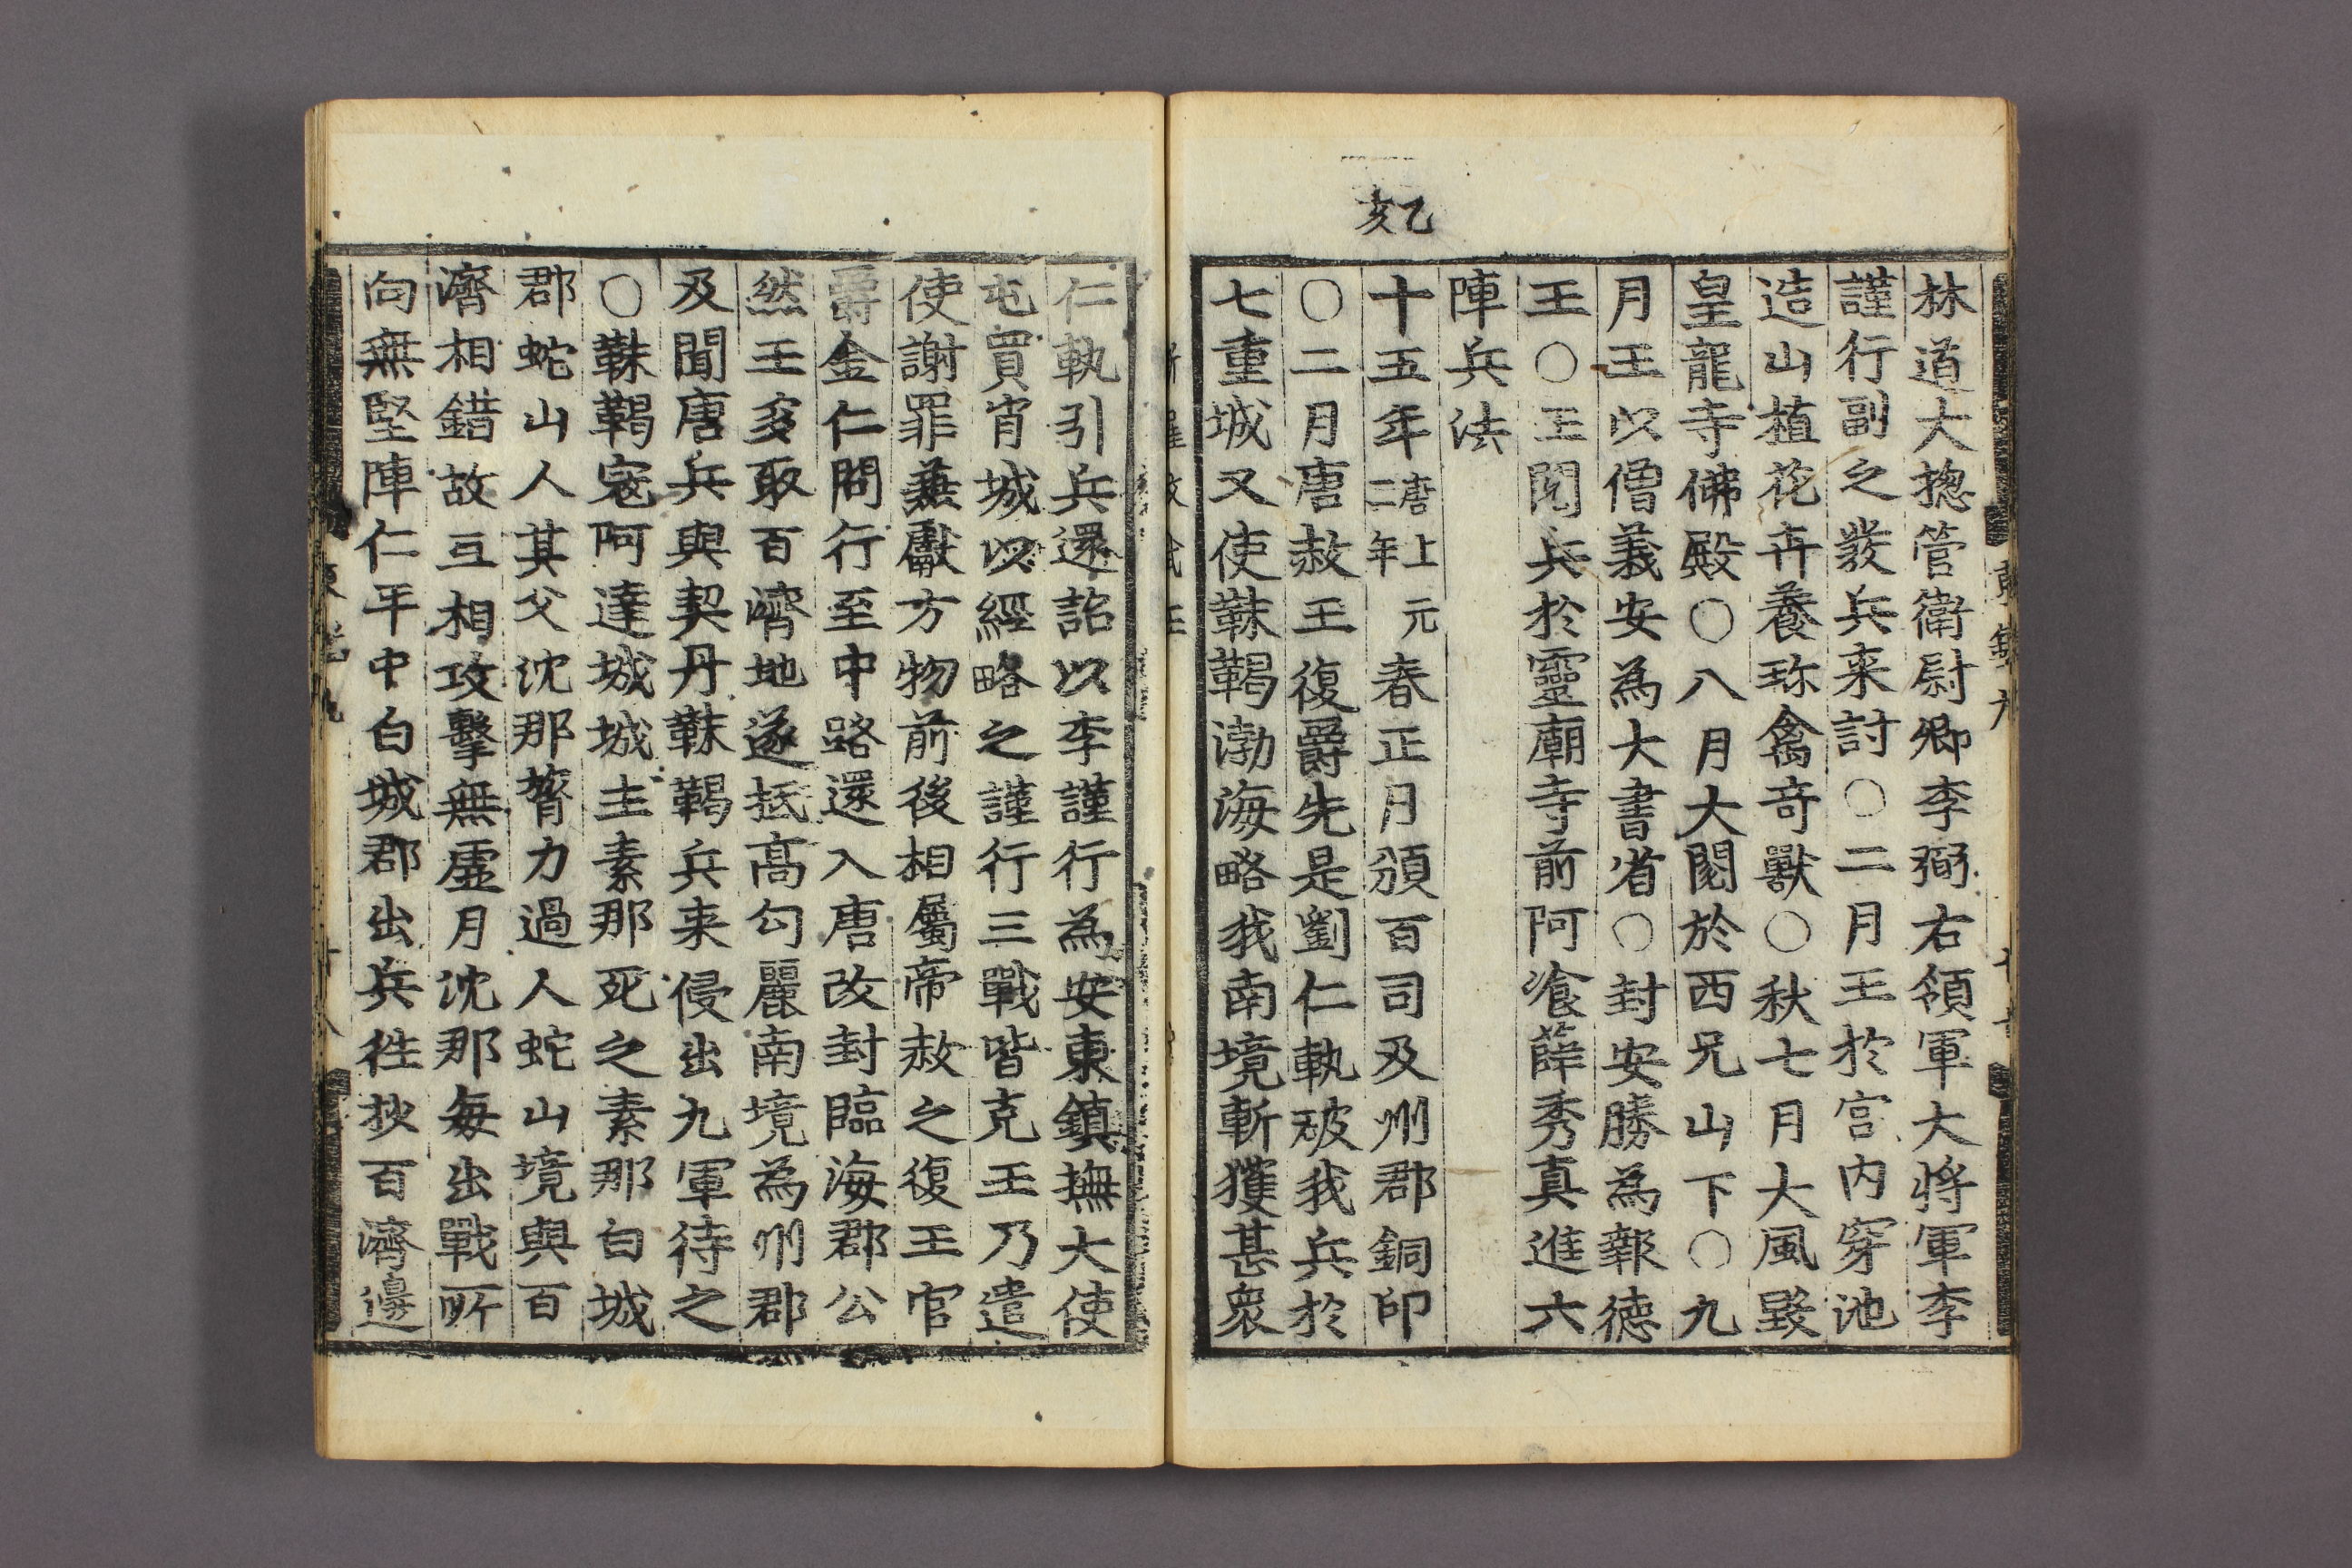 乙亥
林道大摠管衛尉卿李弼右領軍大將軍李
謹行副之發兵来討○二月王於宮内穿池
造山植花卉養珎禽奇獸○秋七月大風毀
皇龍寺佛殿○八月大閱於西兄山下○九
月王以僧義安為大書省○封安勝為報德
王○王閱兵於靈廟寺前阿飡薛秀真進六
陣兵法
十五年唐上元二年春正月頒百司及州郡銅印
○二月唐赦王復爵先是劉仁軌破我兵於
七重城又使靺鞨渤海略我南境斬獲甚衆
仁軌引兵還詔以李謹行為安東鎮撫大使
屯買肖城以經略之謹行三戰皆克王乃遣
使謝罪兼獻方物前後相屬帝赦之復王官
爵金仁問行至中路還入唐改封臨海郡公
然王多取百濟地遂抵高句麗南境為州郡
及聞唐兵與契丹靺鞨兵来侵出九軍待之
○靺鞨寇阿達城城主素那死之素那白城
郡蛇山人其父沈那膂力過人蛇山境與百
濟相錯故互相攻擊無虛月沈那每出戰所
向無堅陣仁平中白城郡出兵徃抄百濟邊